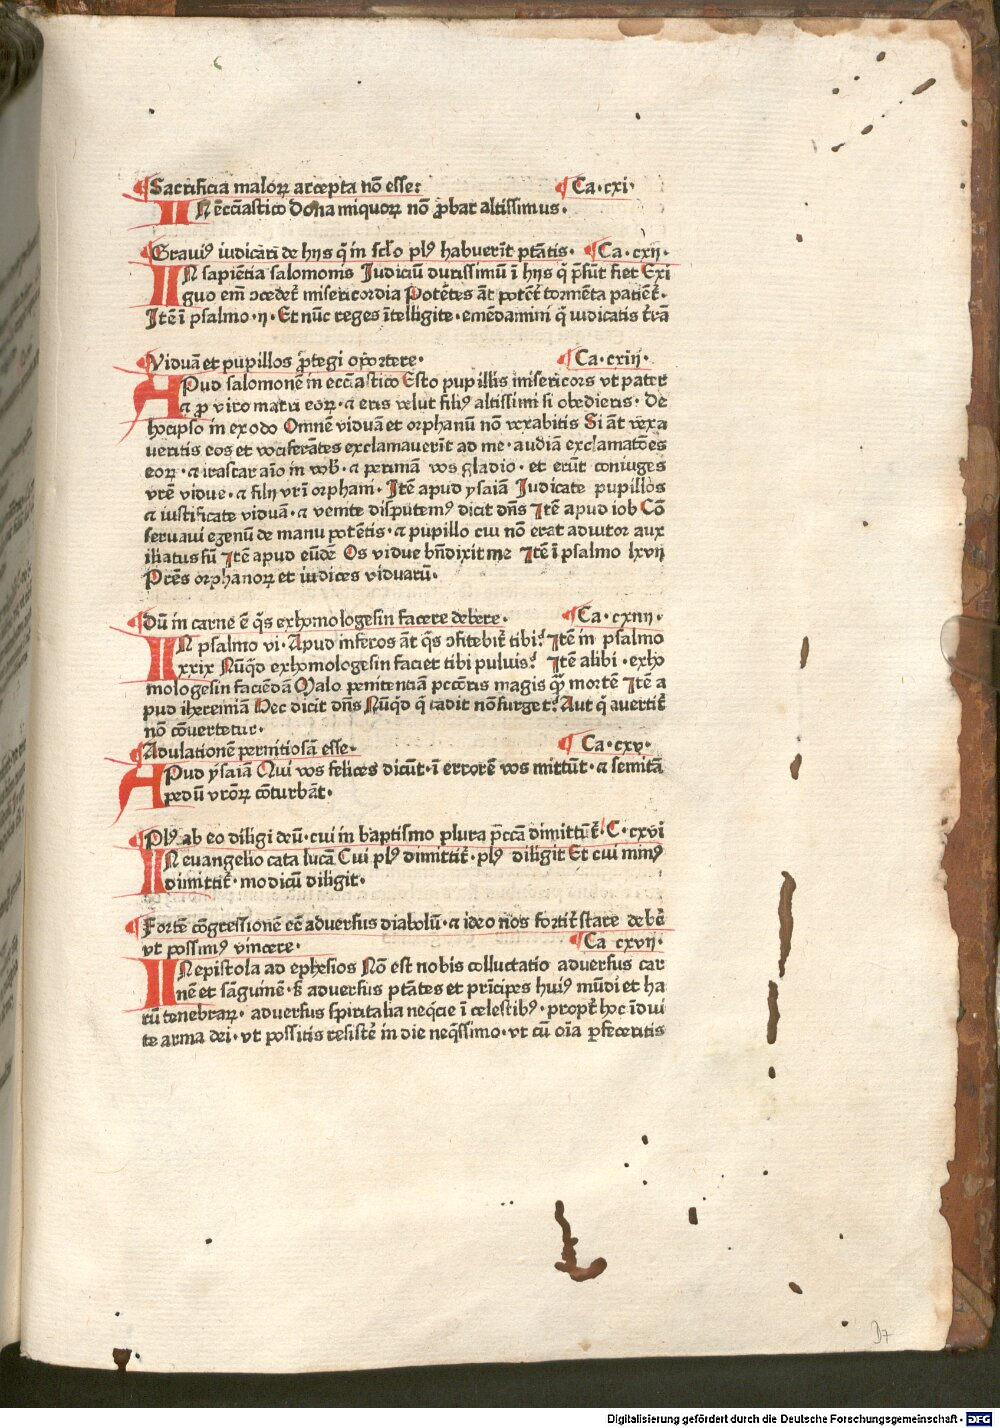 ¶Sacrificia maloꝝ accepta nō esse: ¶Ca·cxi·
IN ecc̄iastico Dona iniquoꝝ nō ꝓbat altissimus·
¶Graviꝰ iudicari de hijs q̄ in sc̄lo plꝰ habuerīt ptātis· ¶Ca·cxij·
IN sapiētia salomonis Judiciū durissimū ī hijs q̄ p̄sūt fiet Exi
guo em̄ ꝯcedet᷑ misericordia Potētes āt potēt᷑ tormēta patiēt᷑·
Jtē ī psalmo·ij·Et nūc reges ītelligite·emēdamini q̄ iudicatis t̄rā
¶Viduā et pupillos ꝓtegi oportere· ¶Ca·cxiij·
APud salomonē in ecc̄iastico Esto pupillis misericors vt pater
⁊ ꝓ viro matri eoꝝ·⁊ eris velut filiꝰ altissimi si obedieris· De
hocipso in exodo Omnē viduā et orphanū nō vexabitis Si āt vexa
ueritis eos et vociferātes exclamauerīt ad me·audiā exclamatōes
eoꝝ·⁊ irascar aīo in vob̄·⁊ perimā vos gladio·et erūt coniuges
vr̄e vidue·⁊ filij vr̄i orphani· Jtē apud ysaiā Judicate pupillos
⁊ iustificate viduā·⁊ venite disputemꝰ dicit dn̄s Jtē apud iob Cō
seruaui egenū de manu potētis·⁊ pupillo cui nō erat adiutor aux
iliatus sū Jtē apud eūdē Os vidue bn̄dixit me Jtē ī psalmo lxvij
Pr̄es orphanoꝝ et iudices viduarū·
¶Dū in carne ē q̄s exhomologesin facere debere· ¶Ca·cxiiij·
IN psalmo vi·Apud inferos āt q̄s ꝯfitebit᷑ tibi? Jtē in psalmo
xxix Nūq̄d exhomologesin faciet tibi puluis? Jtē alibi·exho
mologesin faciēdā Malo penitentiā pctōris magis q̄ꝫ mortē Jtē a
pud iheremiā Hec dicit dn̄s Nūq̄d q̄ cadit nō surget? Aut q̄ avertit᷑
nō cōvertetur·
¶Adulationē pernitiosā esse· ¶Ca·cxv·
APud ysaiā Qui vos felices dicūt·ī errorē vos mittūt·⁊ semitā
pedū vr̄oꝝ cōturbāt·
¶Plꝰ ab eo diligi deū·cui in baptismo plura pc̄cā dimittūt᷑·C·cxvi
IN euangelio cata lucā Cui plꝰ dimittit᷑·plꝰ diligit Et cui minꝰ
dimittit᷑·modicū diligit·
¶Fortē cōgressionē eē adversus diabolū·⁊ ideo nos fortit᷑ stare debē
vt possimꝰ vincere· ¶Ca cxvij·
IN epistola ad ephesios Nō est nobis colluctatio adversus car
nē et sāguinē·s̄ adversus ptātes et prīcipes huiꝰ mūdi et ha
rū tenebraꝝ· adversus spiritalia neq̄cie ī celestibꝰ·propt᷑ hoc īdui
te arma dei·vt possitis resistē in die neq̄ssimo·vt cū oīa ꝑfeceritis
Digitalisierung gefördert durch die Deutsche Forschungsgemeinschaft - DFG